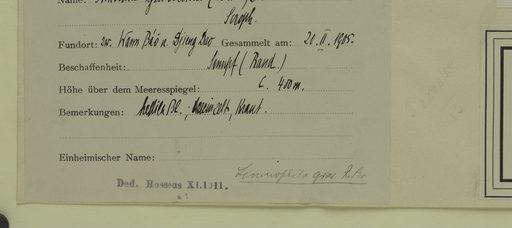 Name:
Scroph.
Fundort: zw. Wann Bao u. Djieng Dao Gesammelt am: 20. II. 1905.
Beschaffenheit: Sumpf (Rand)
Höhe über dem Meeresspiegel: c. 400 m.
Bemerkungen: hellila Bl., vereinzelt, Kraut.
Einheimischer Name:
Ded. Hosseus XI.1911.
Limnophila